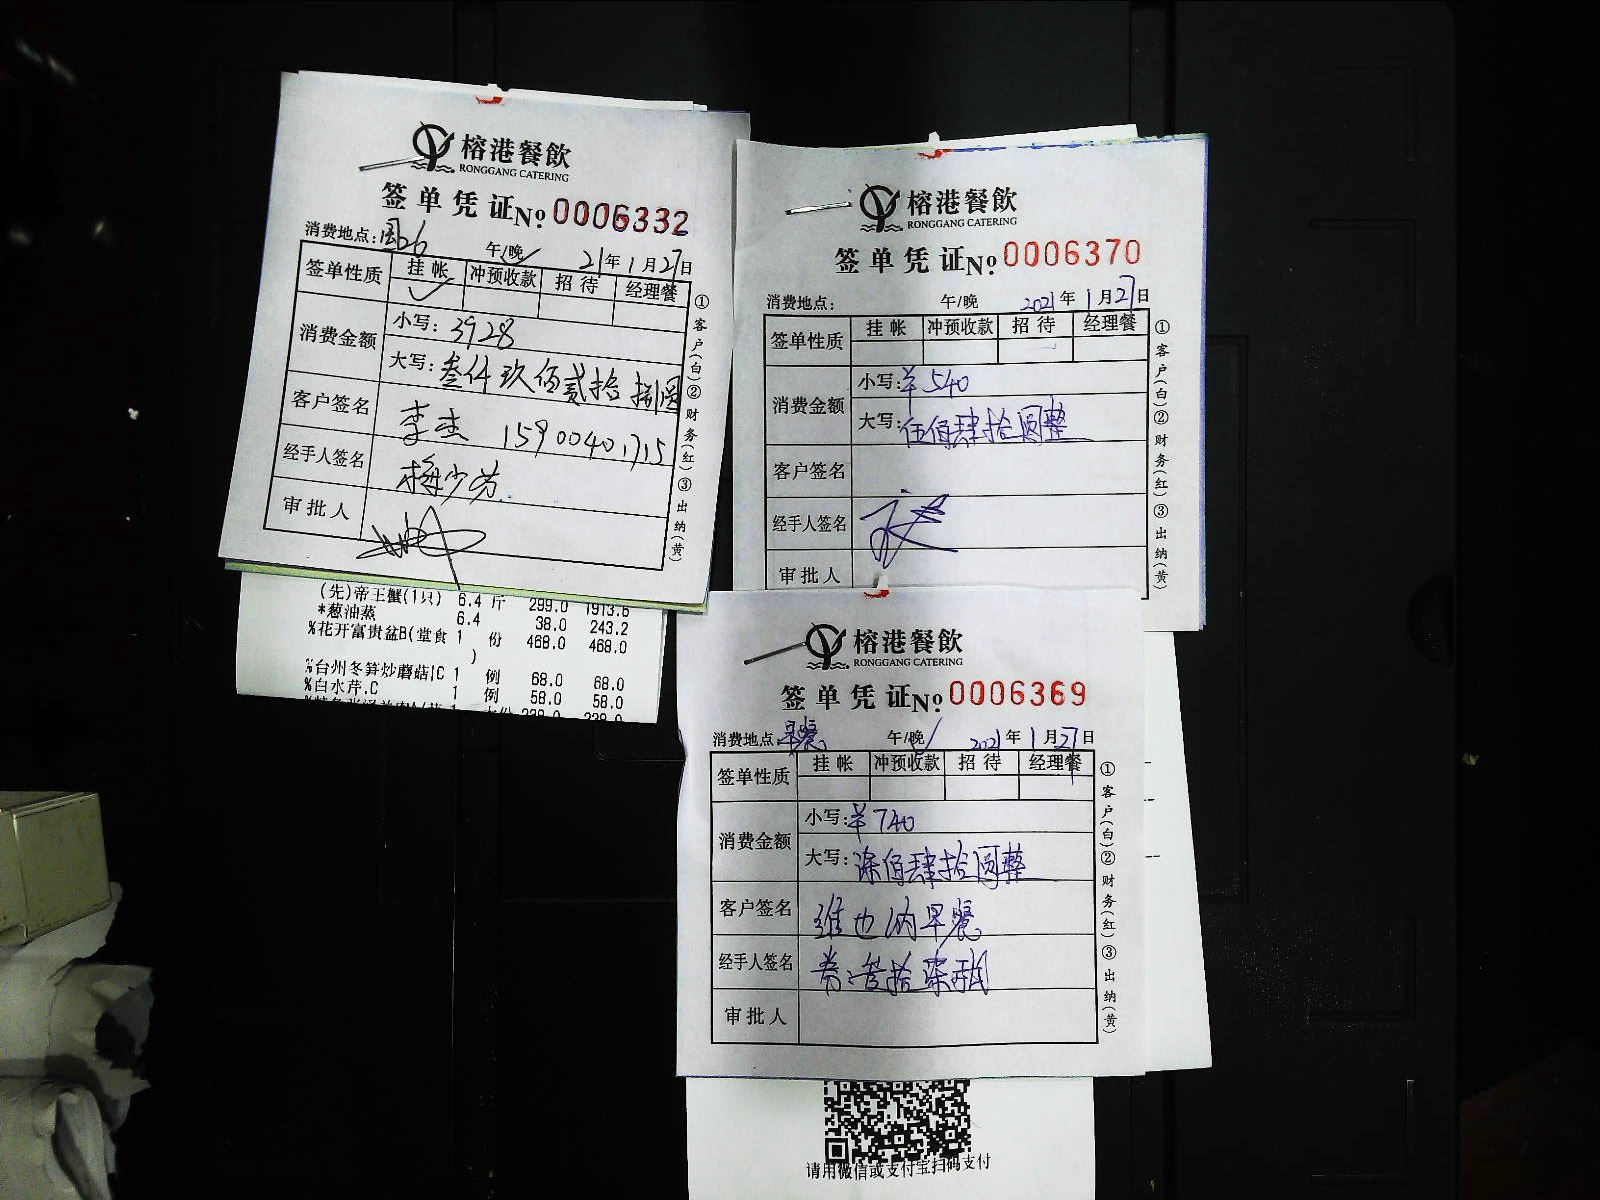 榕港餐飲
RONGGANG CATERING
签单凭证 No. 0006332
消费地点: 26 午/晚 21年1月27日
签单性质 挂帐 冲预收款 招待 经理餐
消费金额 小写: 3928
大写: 叁仟玖佰贰拾捌圆
客户签名 李杰 15900401715
经手人签名 梅少芬
审批人
①客户(白)②财务(红)③出纳(黄)
(先)帝王蟹(1只) 6.4 斤 299.0 1913.6
*葱油蒸 6.4 38.0 243.2
%花开富贵盆B(堂食 1 份 468.0 468.0
)
%台州冬笋炒蘑菇|C 1 例 68.0 68.0
%白水芹.C 1 例 58.0 58.0
榕港餐飲
RONGGANG CATERING
签单凭证 No. 0006370
消费地点: 午/晚 2021年1月27日
签单性质 挂帐 冲预收款 招待 经理餐
消费金额 小写: ¥540
大写: 伍佰肆拾圆整
客户签名
经手人签名
审批人
①客户(白)②财务(红)③出纳(黄)
榕港餐飲
RONGGANG CATERING
签单凭证 No. 0006369
消费地点: 早餐 午/晚 2021年1月27日
签单性质 挂帐 冲预收款 招待 经理餐
消费金额 小写: ¥740
大写: 柒佰肆拾圆整
客户签名 维也纳早餐
经手人签名
审批人
①客户(白)②财务(红)③出纳(黄)
请用微信或支付宝扫码支付